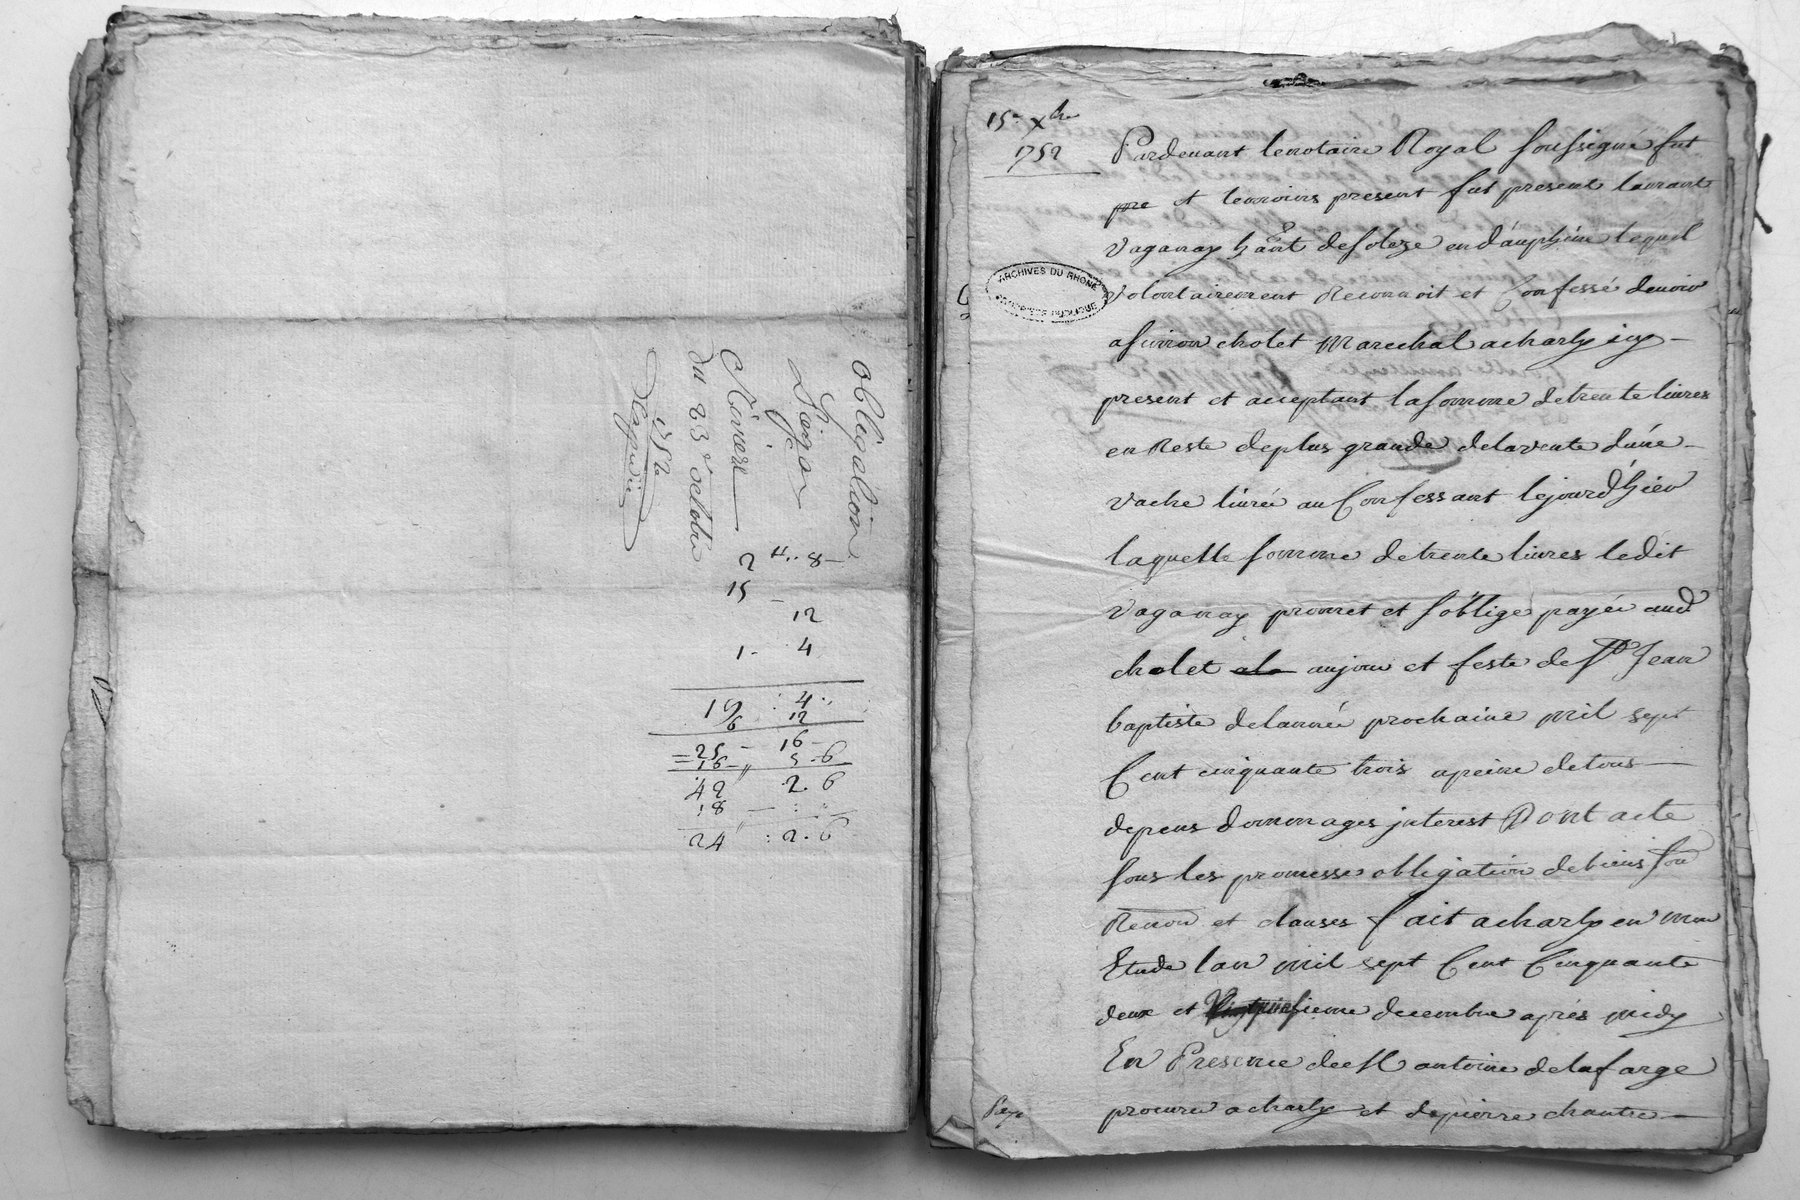 obligation
du 23 octobre
1752
2 ₶.. 8 -
15 -
12
1 - 4
19 : 4 :
6 12
= 25 - 16 -
16 - " 5 - 6
42 2 . 6
18 -
24 " : 2 . 6
15e Xbre
1752
Pardevant le notaire Royal soussigné fut
pre et temoins present fut present laurant
Vaganay hant de soleze en dauphine lequel
volontairement Reconnoit et Confessé devoir
a simon cholet marechal a charly icy
present et acceptant la somme de trente livres
en Reste de plus grande de la vente d'une
vache livrée au Confessant le jour d'hier
laquelle somme de trente livres ledit
vaganay promet et s'oblige payer aud
cholet a la au jour et feste de St Jean
baptiste de l'année prochaine mil sept
Cent cinquante trois a peine de tous
depens dommages interest Dont acte
sous les promesses obligation de biens sou
Renon et clauses fait a charly en mon
Etude l'an mil sept Cent Cinquante
deux et decembre aprés midy
En Presence de antoine delafarge
procureur a charly et de pierre chantre
ARCHIVES DU RHONE